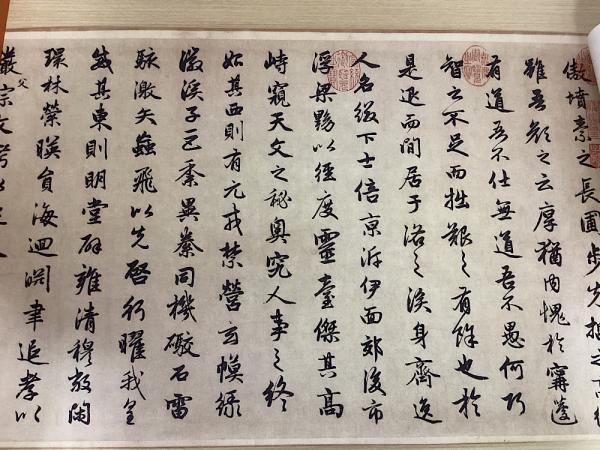 傲墳素之長圃步先哲之高
雖吾顏之云厚猶內愧於甯蘧
有道吾不仕無道吾不愚何巧
智之不足而拙艱之有餘也於
是退而閒居于洛之涘身齊逸
人名綴下士倍京泝伊面郊後市
浮梁黝以徑度靈臺傑其高
峙窺天文之秘奧究人事之終
始其西則有元戎禁營玄幙綠
徽溪子巨黍異絭同機礮石雷
駭激矢蝱飛以先啓行曜我皇
威其東則明堂辟雍清穆敞閑
環林縈暎員海迴淵聿追孝以
嚴父宗文考以